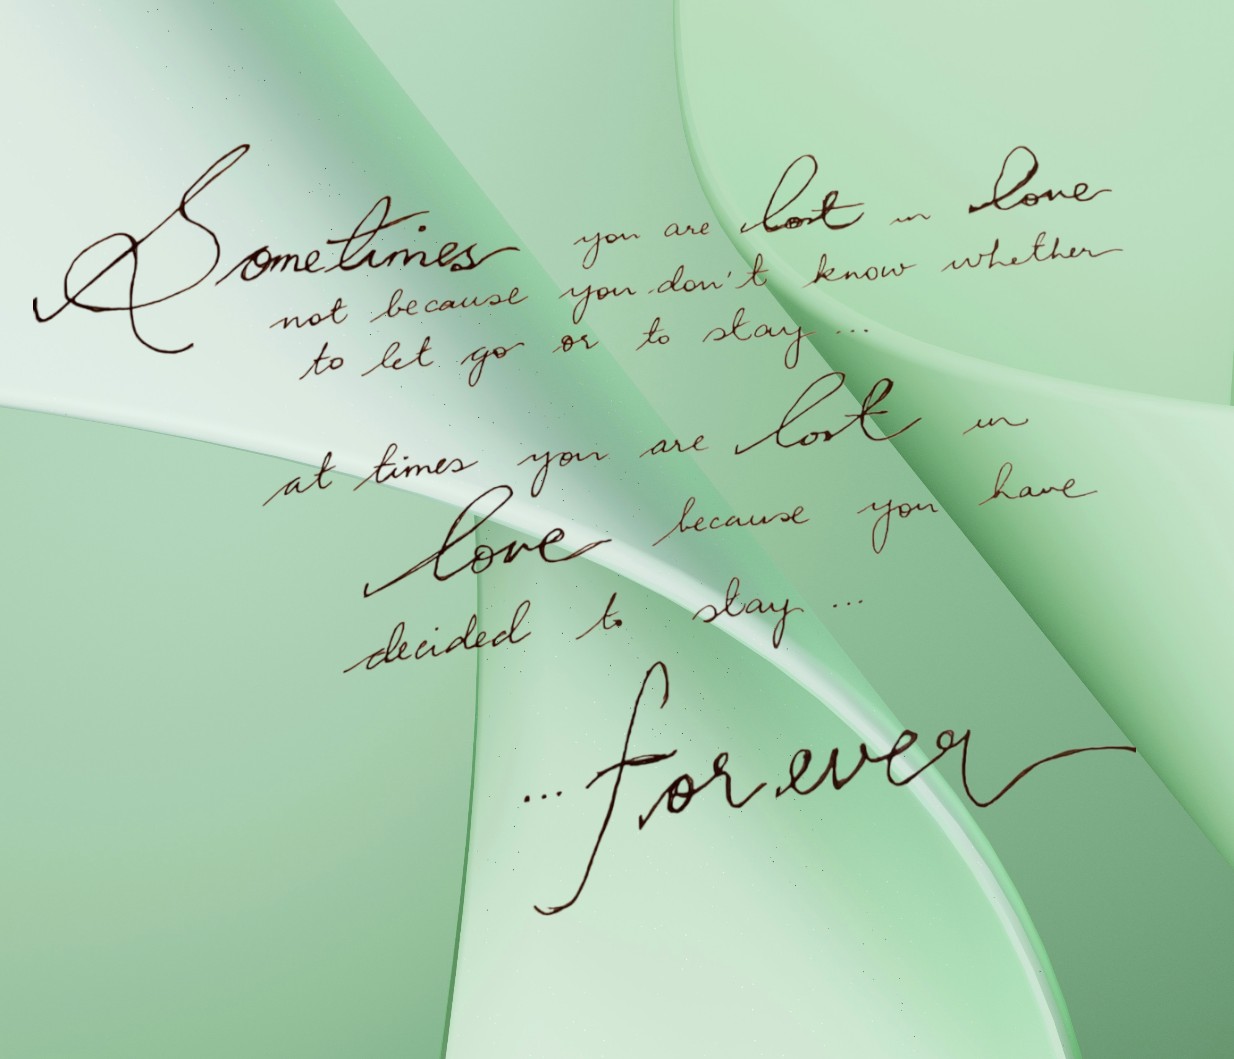 Sometimes you are lost in love
not because you don't know whether
to let go or to stay ...
at times you are lost in
love because you have
decided to stay ...
... forever